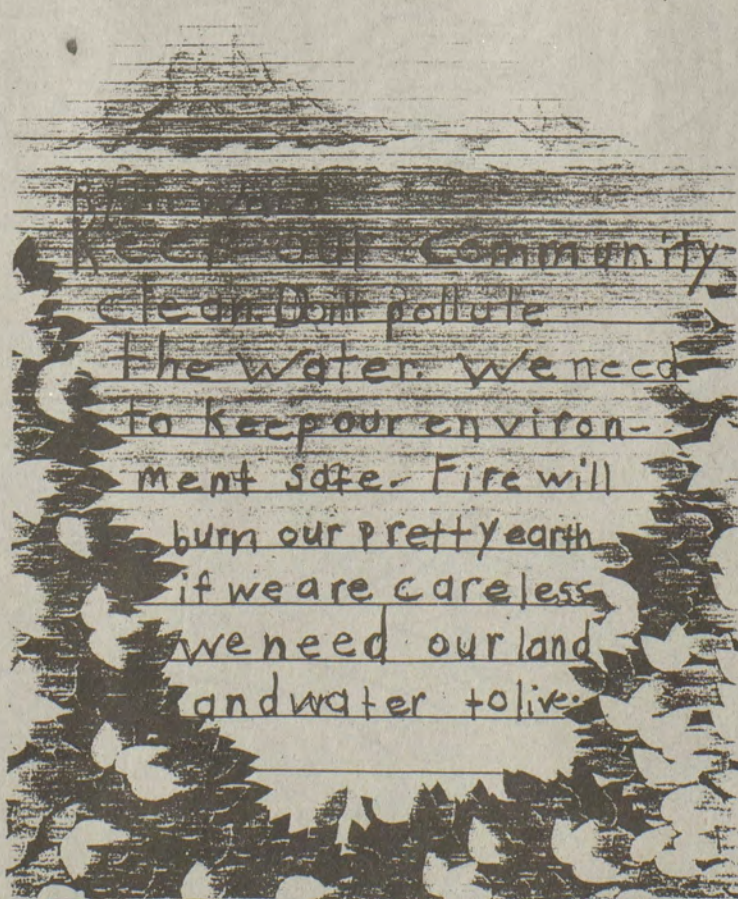 By
Keep our community
clean. Don't pollute
the water. We need
to keep our environ-
ment safe. Fire will
burn our pretty earth
if we are careless
we need our land
and water to live.